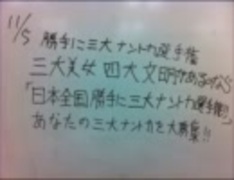 11/5
勝手に三大ナントカ選手権
三大美女 四大文明があるなら
「日本全国勝手に三大ナントカ選手権!!」
あなたの三大ナントカを大募集!!